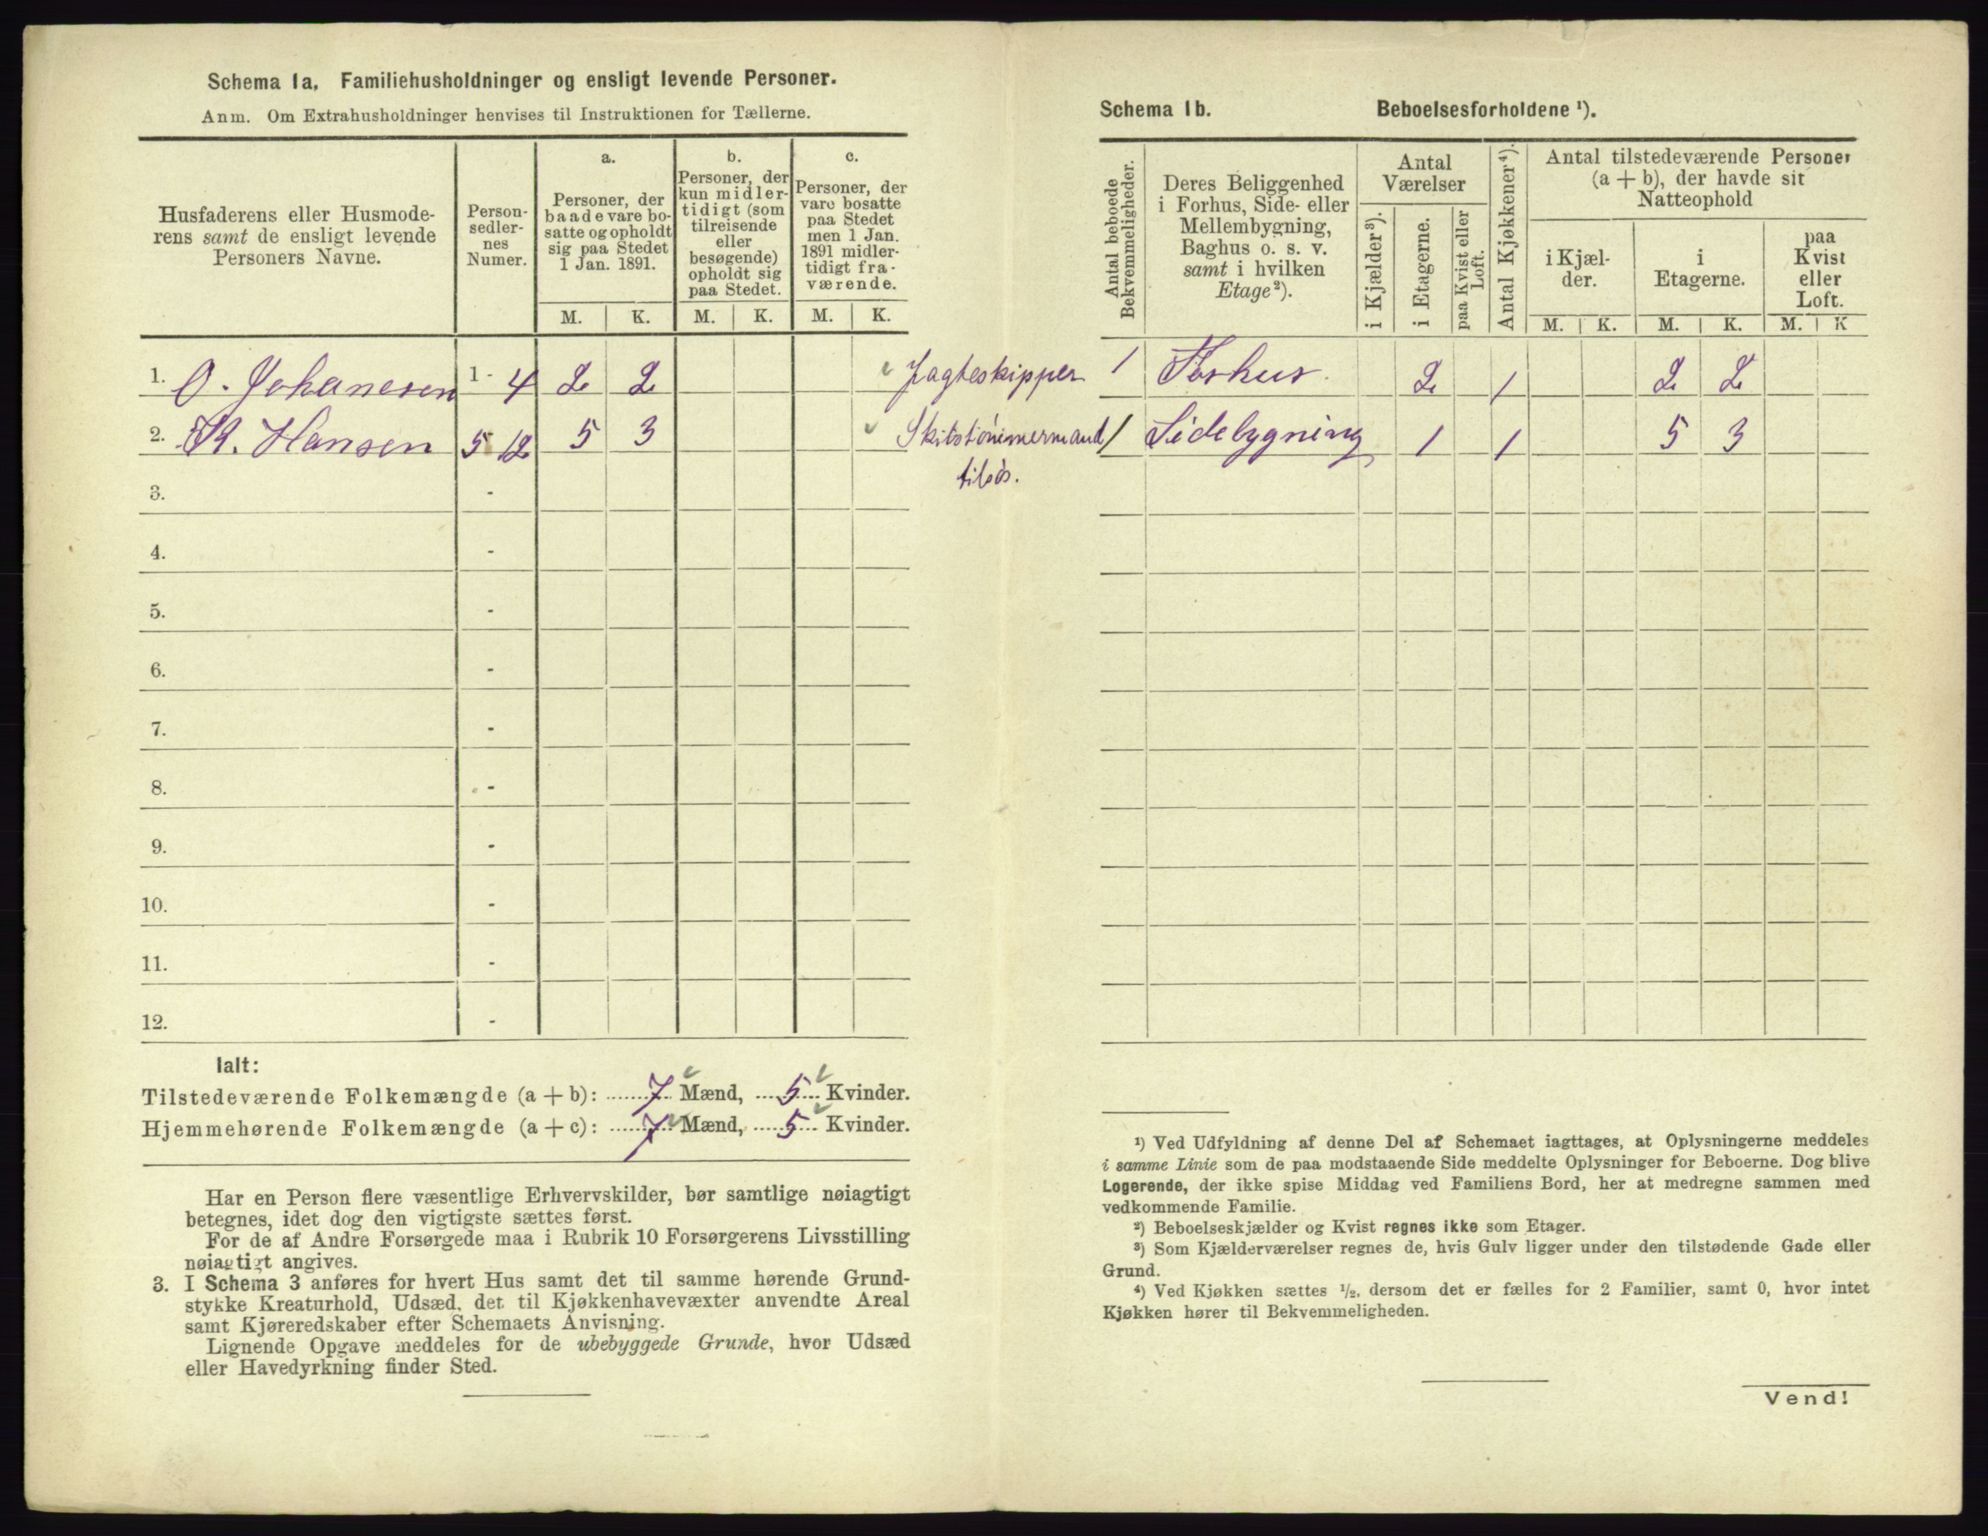 Schema 1a. Familiehusholdninger og ensligt levende Personer.
Anm. Om Extrahusholdninger henvises til Instruktionen for Tællerne.
Husfaderens eller Husmode-
rens samt de ensligt levende
Personers Navne.
Person-
sedler-
nes
Numer.
a.
Personer, der
baade vare bo-
satte og opholdt
sig paa Stedet
1 Jan. 1891.
b.
Personer, der
kun midler-
tidigt (som
tilreisende
eller
besøgende)
opholdt sig
paa Stedet.
c.
Personer, der
vare bosatte
paa Stedet
men 1 Jan.
1891 midler-
tidigt fra-
værende.
M. K. M. K. M. K.
1. O. Johanesen 1 - 4 2 2 Jagteskipper
2. K. Hansen 5 - 12 5 3
3. -
4. -
5. -
6. -
7. -
8. -
9. -
10. -
11. -
12. -
Ialt:
Tilstedeværende Folkemængde (a + b): 7 Mænd, 5 Kvinder.
Hjemmehørende Folkemængde (a + c): 7 Mænd, 5 Kvinder.
Har en Person flere væsentlige Erhvervskilder, bør samtlige nøiagtigt
betegnes, idet dog den vigtigste sættes først.
For de af Andre Forsørgede maa i Rubrik 10 Forsørgerens Livsstilling
nøiagtigt angives.
3. I Schema 3 anføres for hvert Hus samt det til samme hørende Grund-
stykke Kreaturhold, Udsæd, det til Kjøkkenhavevæxter anvendte Areal
samt Kjøreredskaber efter Schemaets Anvisning.
Lignende Opgave meddeles for de ubebyggede Grunde, hvor Udsæd
eller Havedyrkning finder Sted.
Schema 1b. Beboelsesforholdene ¹).
Antal beboede
Bekvemmeligheder.
Deres Beliggenhed
i Forhus, Side- eller
Mellembygning,
Baghus o. s. v.
samt i hvilken
Etage²).
Antal
Værelser
i Kjælder³).
i Etagerne.
paa Kvist eller
Loft.
Antal Kjøkkener⁴).
Antal tilstedeværende Personer
(a + b), der havde sit
Natteophold
i Kjæl-
der.
i
Etagerne.
paa
Kvist
eller
Loft.
M. K. M. K. M. K
1 Forhus. 2 1 2 2
1 Sidebygning 1 1 5 3
¹) Ved Udfyldning af denne Del af Schemaet iagttages, at Oplysningerne meddeles
i samme Linie som de paa modstaaende Side meddelte Oplysninger for Beboerne. Dog blive
Logerende, der ikke spise Middag ved Familiens Bord, her at medregne sammen med
vedkommende Familie.
²) Beboelseskjælder og Kvist regnes ikke som Etager.
³) Som Kjælderværelser regnes de, hvis Gulv ligger under den tilstødende Gade eller
Grund.
⁴) Ved Kjøkken sættes ½, dersom det er fælles for 2 Familier, samt 0, hvor intet
Kjøkken hører til Bekvemmeligheden.
Vend!